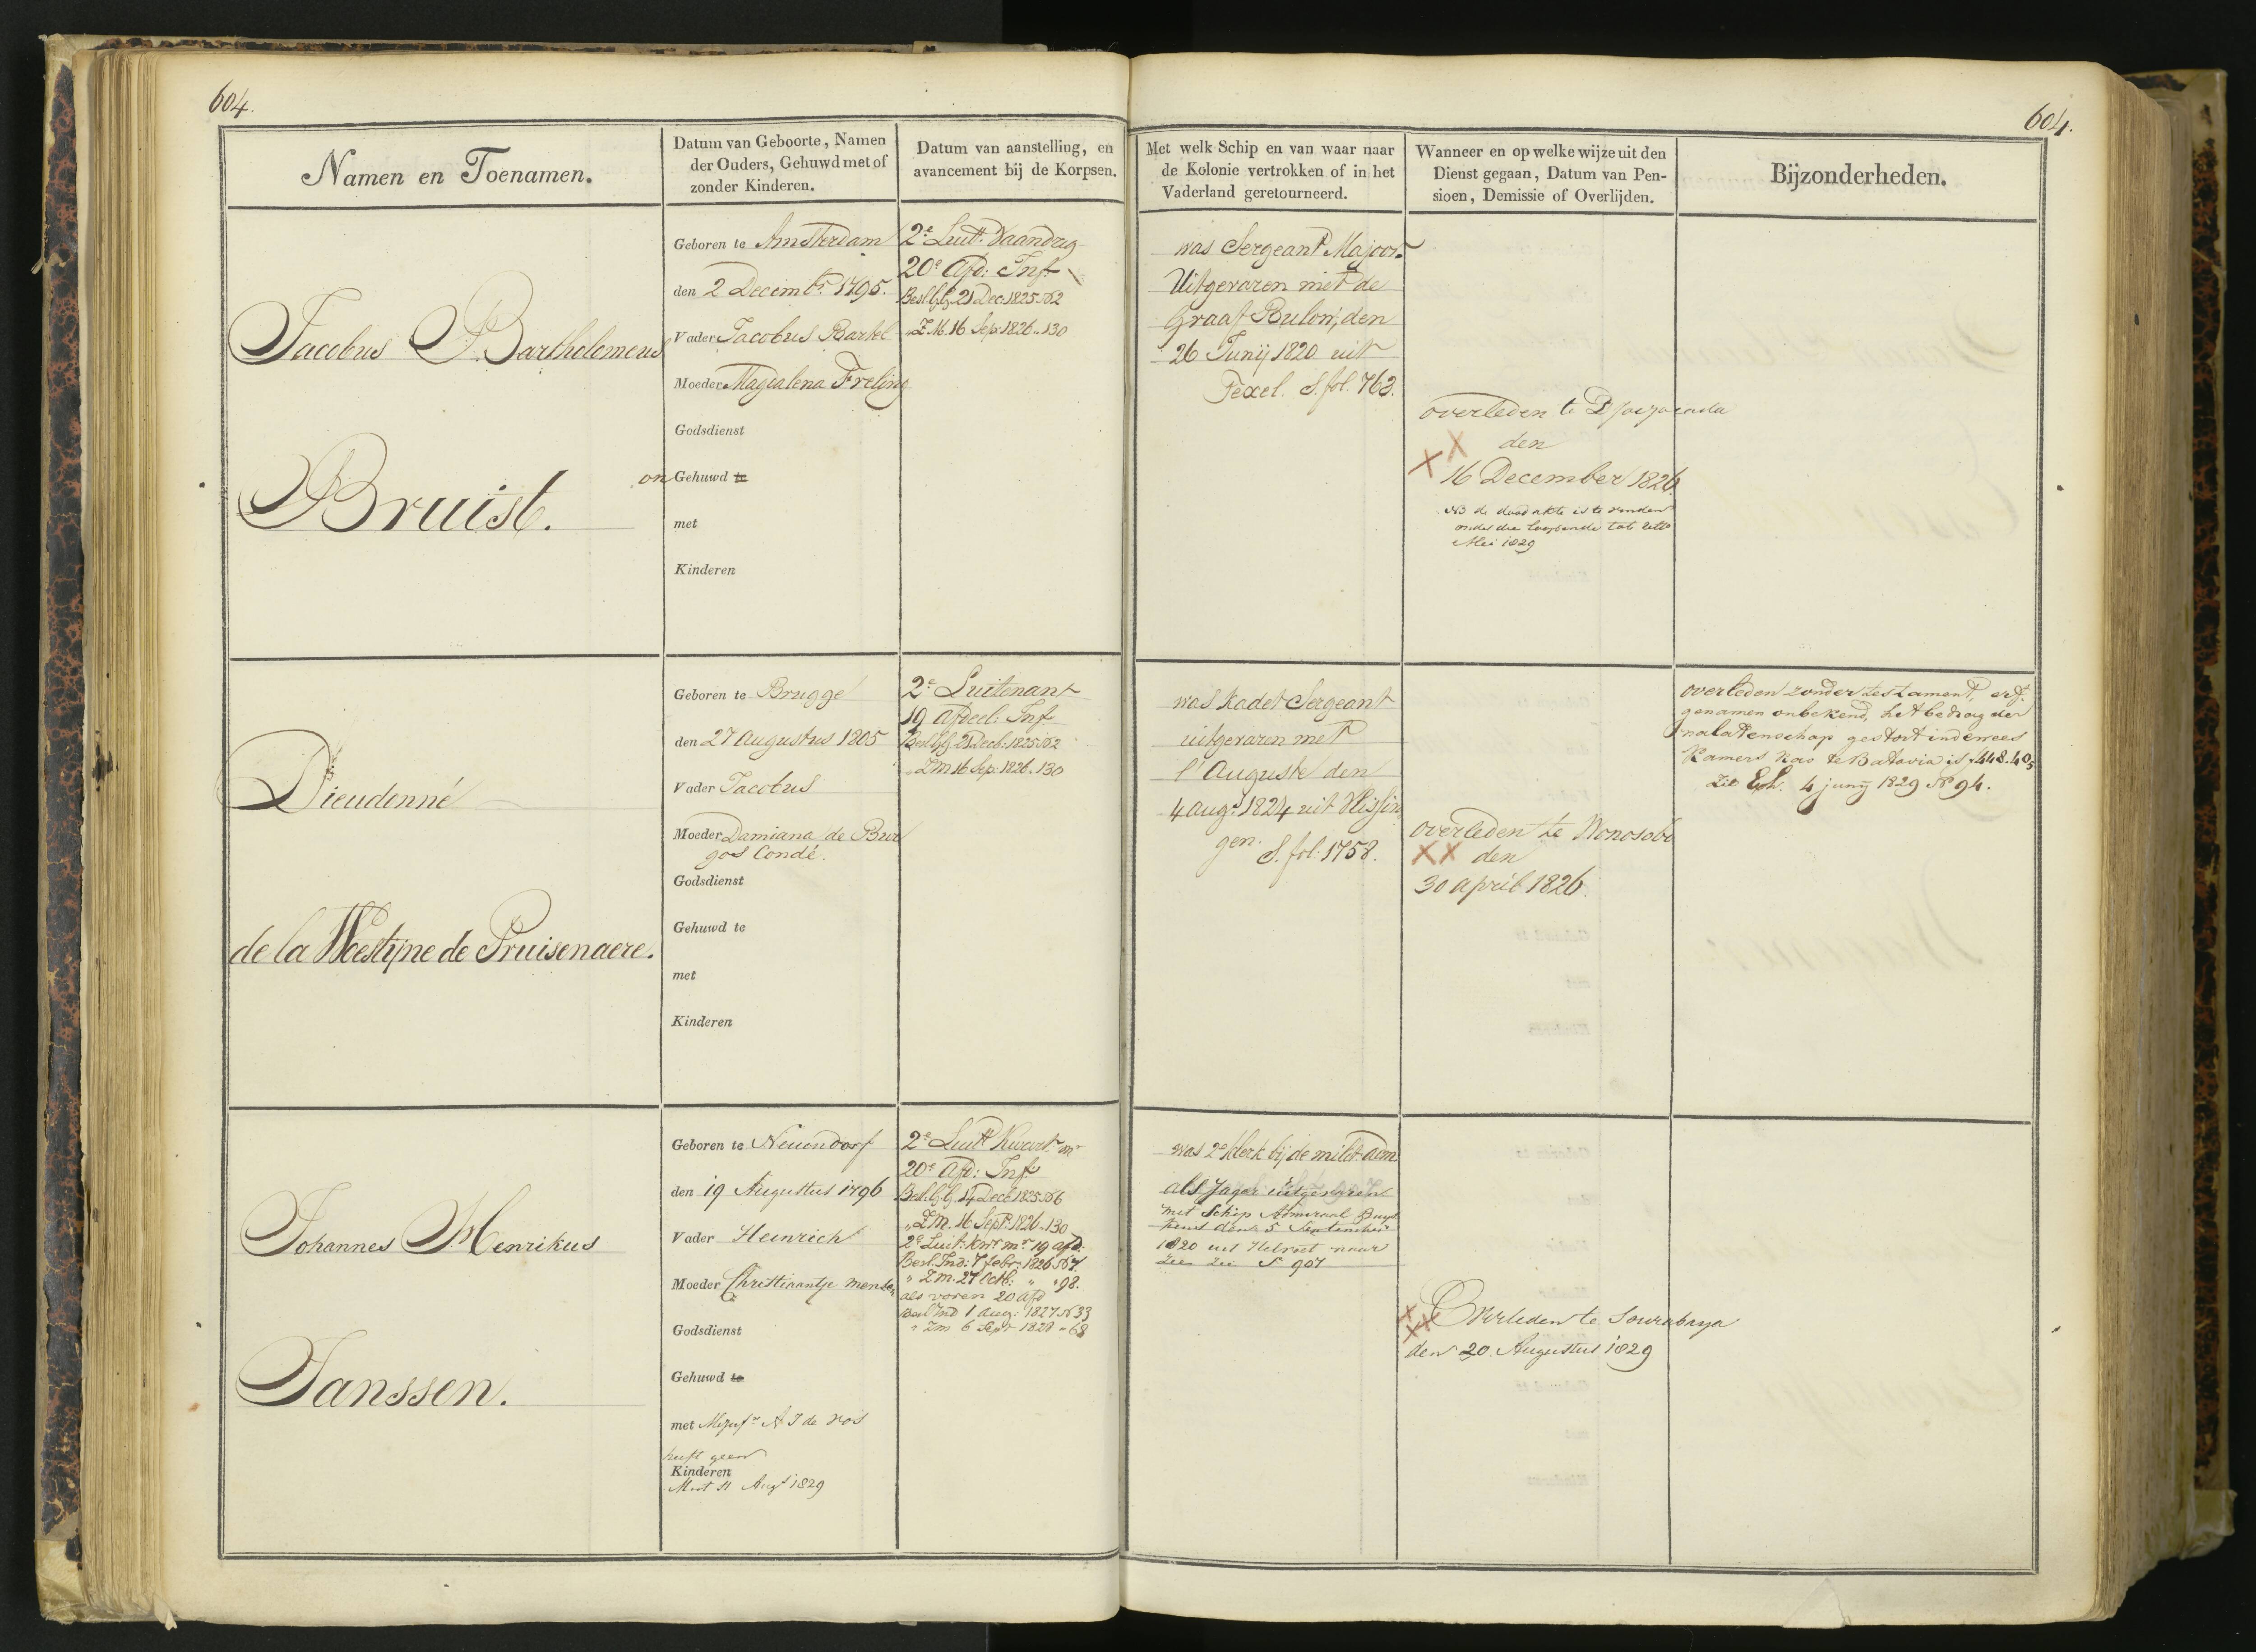 604.
604.
Namen en Toenamen.
Datum van Geboorte, Namen
der Ouders, Gehuwd met of
zonder Kinderen.
Datum van aanstelling, en
avancement bij de Korpsen.
Met welk Schip en van waar naar
de Kolonie vertrokken of in het
Vaderland geretourneerd.
Wanneer en op welke wijze uit den
Dienst gegaan, Datum van Pen-
sioen, Demissie of Overlijden.
Bijzonderheden.
Jacobus Bartholomeus
Bruist.
Geboren te Amsterdam
den 2 Decembr. 1795.
Vader Jacobus Bartel
Moeder Magdalena Freling
Godsdienst
on Gehuwd te
met
Kinderen
2e Luitt. Vaandrg
20e Afd: Inf.
Besl. G.G. 21 Dec. 1825 No 2
" Z.M. 16 Sep. 1826 " 130
was Sergeant Majoor.
Uitgevaren met de
Graaf Bulon, den
26 Junij 1820 uit
Texel. S. fol. 763.
overleden te Djocjocarta
den
16 December 1826.
NB de dood akte is te vinden
onder die loopende tot ulto
Mei 1829
Dieudonné
de la Woestijne de Pruisenaere.
Geboren te Brugge
den 27 Augustus 1805
Vader Jacobus
Moeder Damiana de Bur
gos Condé.
Godsdienst
Gehuwd te
met
Kinderen
2e Luitenant
19 Afdeel: Inf
Besl. G.G. 21 Decb. 1825 No 2
" Z.M 16 Sep: 1826 " 130
was Kadet Sergeant
uitgevaren met
l'Auguste den
4 Aug. 1824 uit Vlissin
gen. S. fol. 1758.
overleden te Wonosobo
den
30 april 1826.
overleden zonder testament, erf-
genamen onbekend, het bedrag der
nalatenschap gestort in de wees
Kamers Kas te Batavia is f 448.40,5
zie Exh. 4 junij 1829 No 94.
Johannes Henrikus
Janssen.
Geboren te Neuendorf
den 19 Augustus 1796
Vader Heinrich
Moeder Christiaantje Menken
Godsdienst
Gehuwd te
met Mejufr. A J de Vos
heeft geen
Kinderen
Mert 11 Augt 1829
2e Luitt. Kwart. mr
20e Afd: Inf.
Besl. G.G. 14 Decb 1825 No 6
" Z.M. 16 Sept. 1826 " 130
2e Luit: Kwr mr. 19 afd:
Besl. Ind: 7 febr. 1826 No 7.
" Z.M. 27 Octb: " " 98.
als voren 20 afd
Besl Ind 1 Aug: 1827 No 33
" Z m 6 Sept 1828 " 68
was 2e Klerk bij de milit. adm.
als Jager uitgevaren
met Schip Admiraal Buys
kens den 5 September
1820 uit Helvoet naar
zie S 907
Overleden te Sourabaya
den 20 Augustus 1829